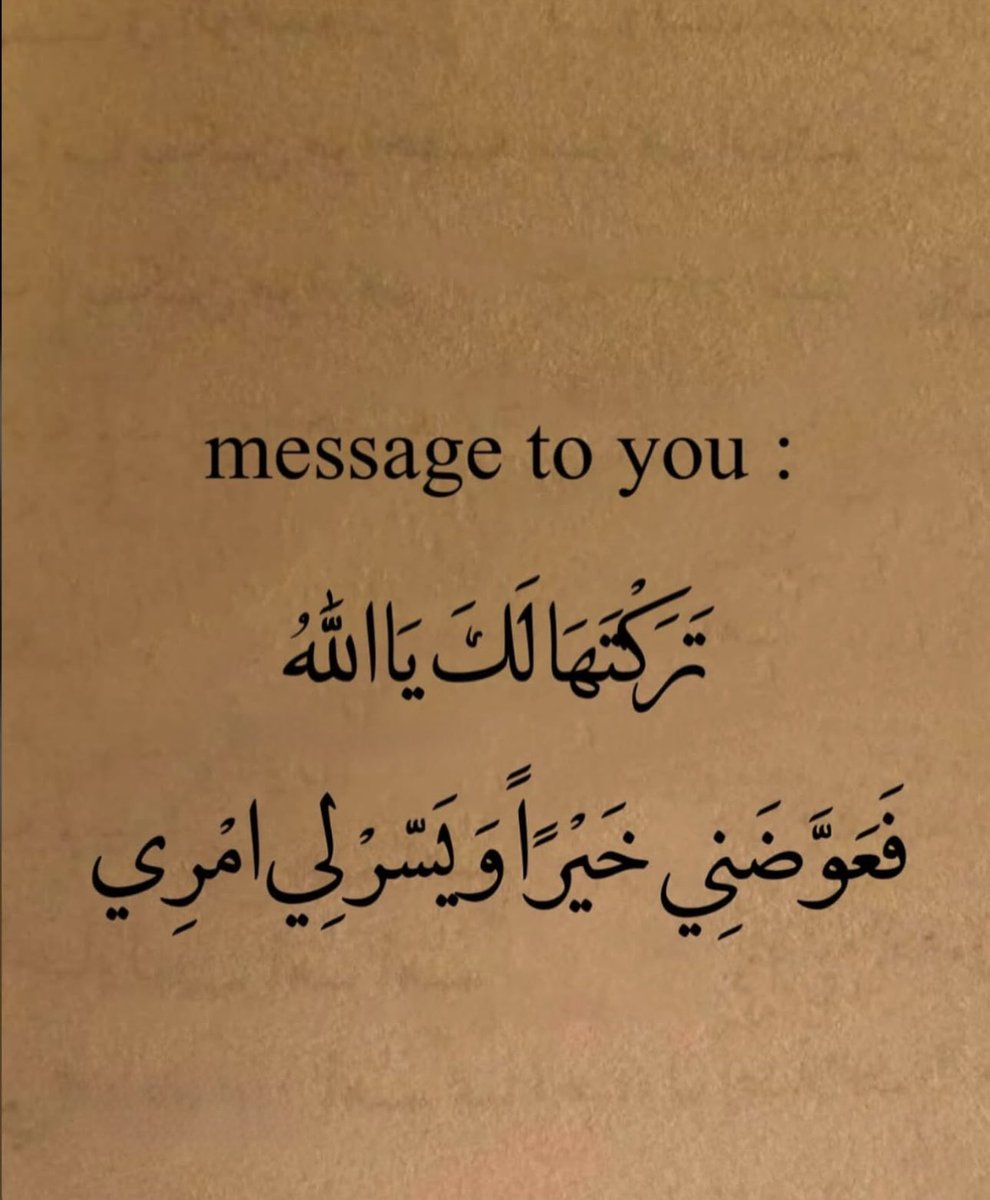 message to you :
تَرَكْتَهَا لَكَ يَا اللّٰهُ
فَعَوَّضَنِي خَيْرًاً وَ يَسّرْ لِي امْرِي